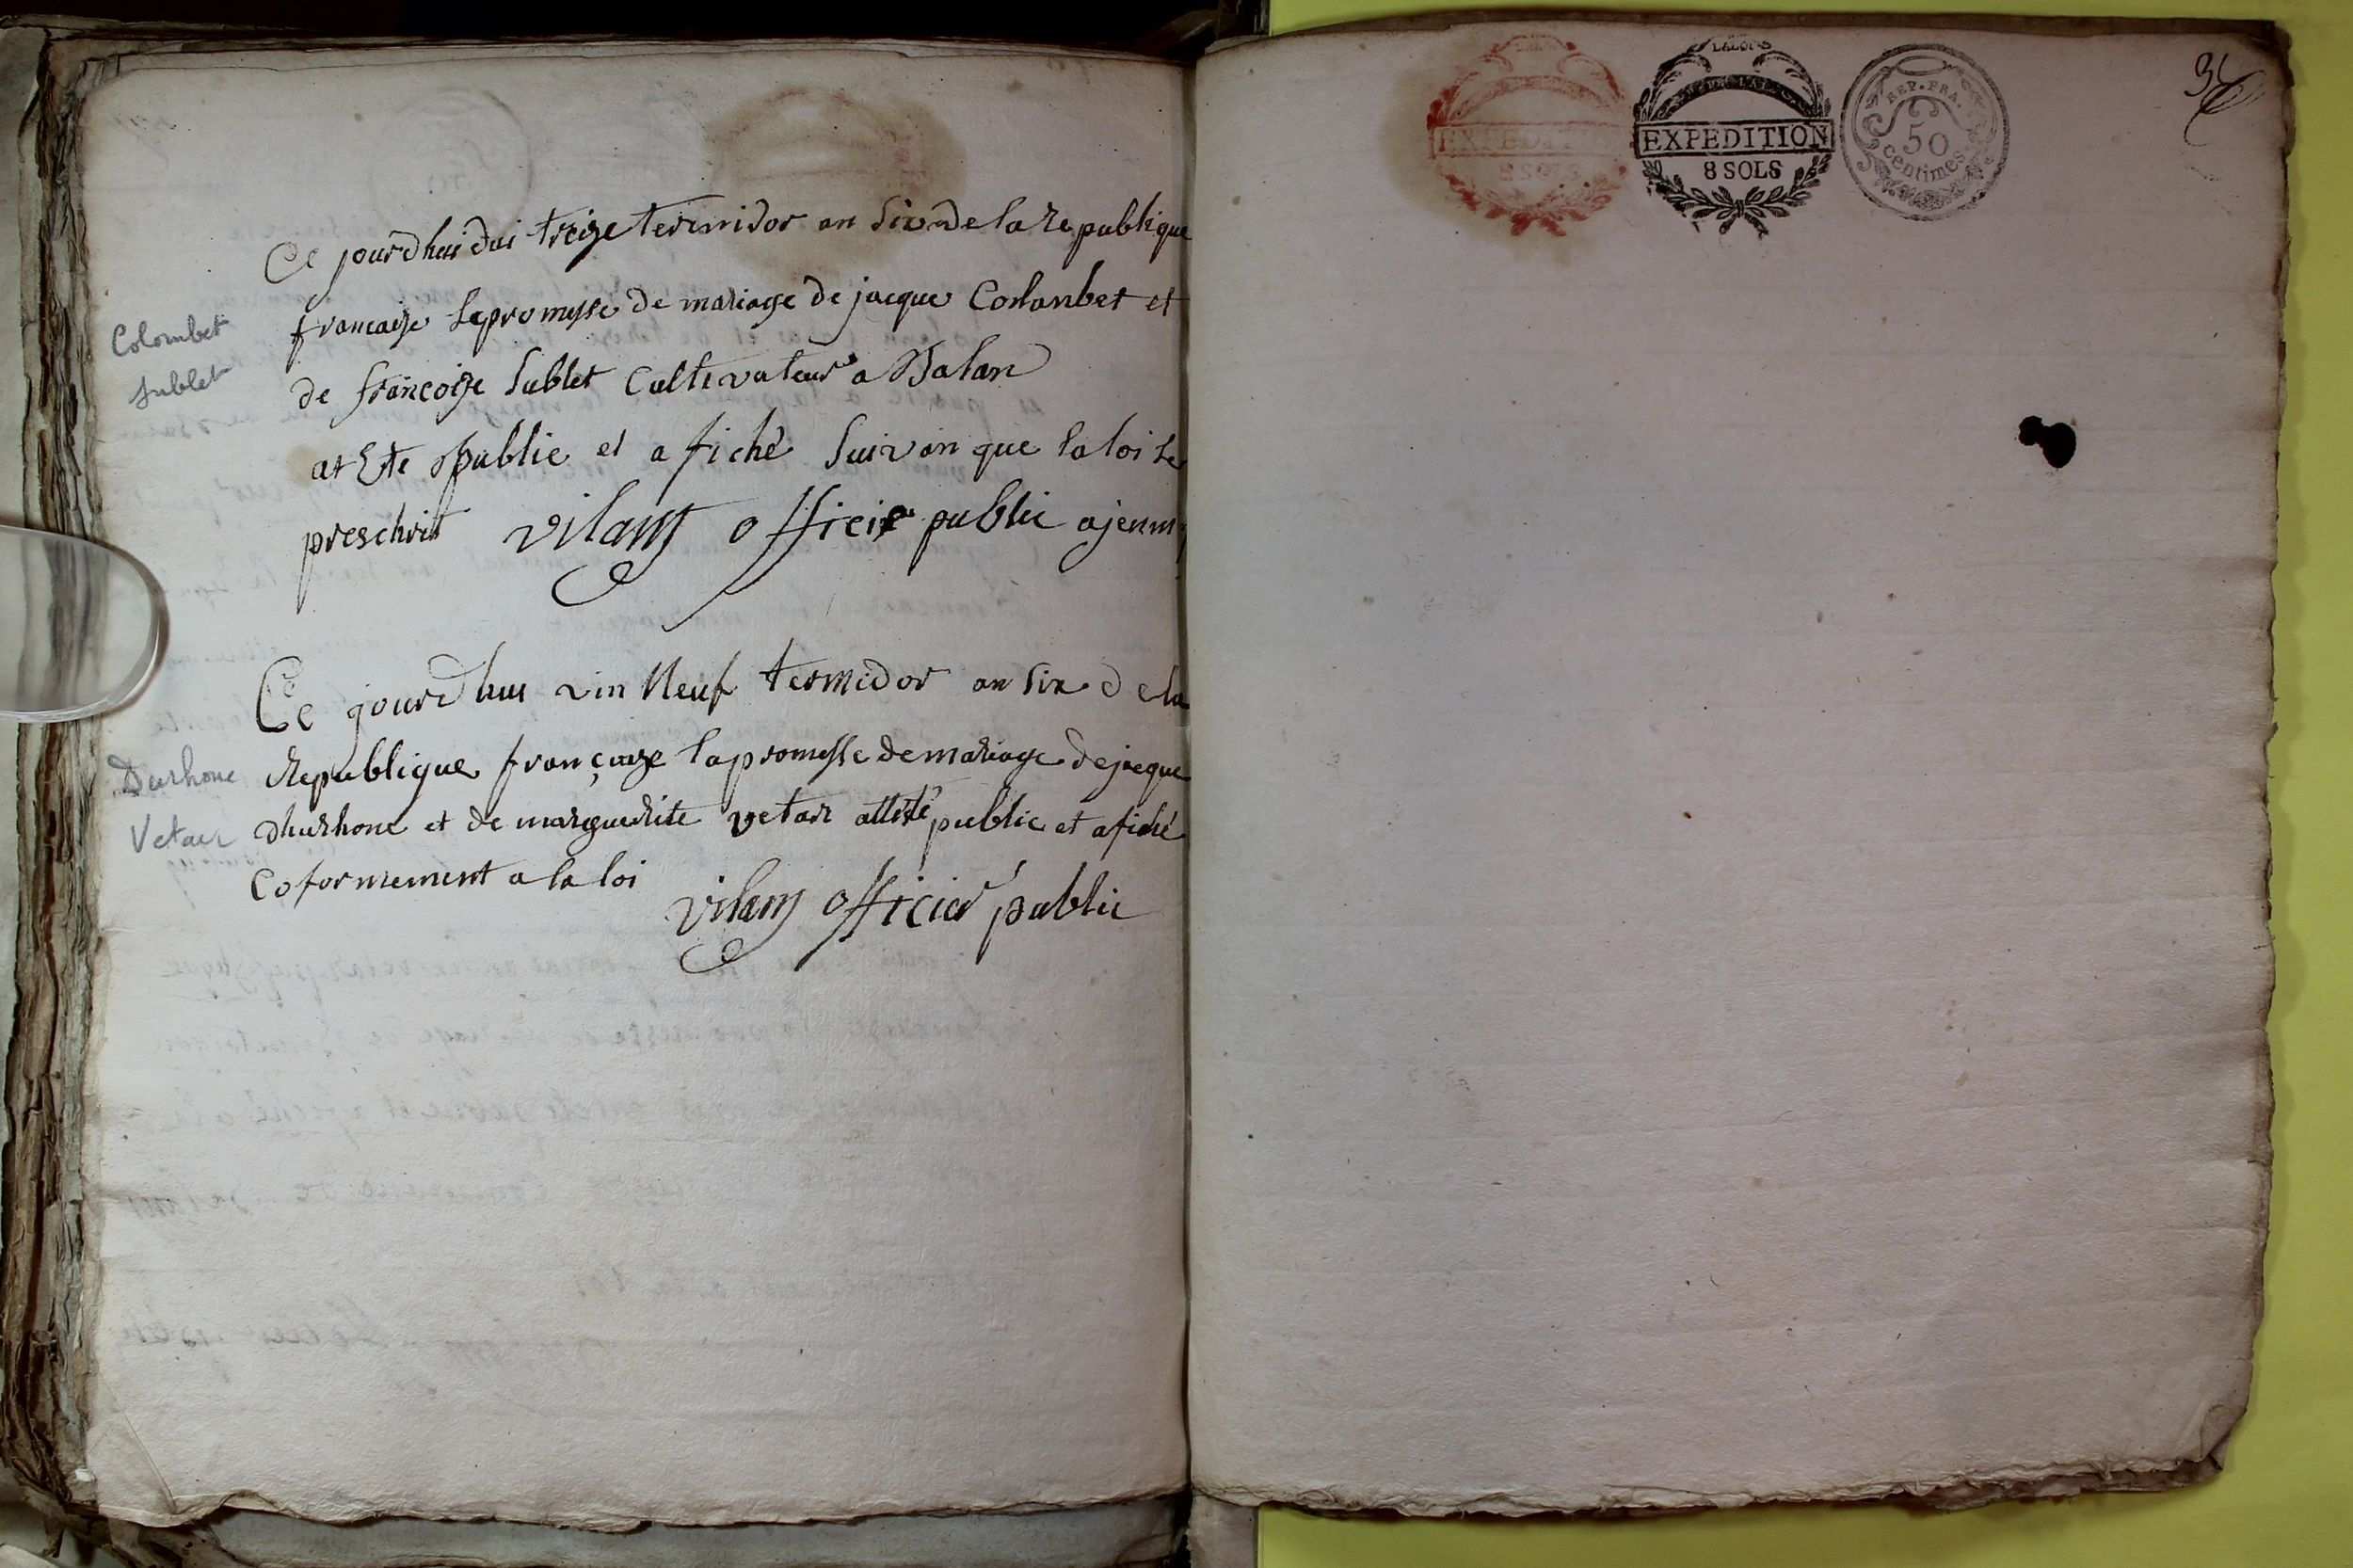 Ce jourdhui dui treize termidor an Six de la republique
francaize la promesse de mariage de jacque Colanbet et
Colombet
Sublet
de francoize Sublet Cultivateur a Balan
at Ete publie et afiché Suivan que la loi le
preschrit vilam officie public ajeun
Ce jourdhui vin Neuf termidor an Six de la
Republique françaize la promesse de mariage de jacque
Durhone
Vetar
dhurhone et de marguerite vetar atteté public et afiché
Coformement a la loi
vilam officier public
LALOI
EXPEDITION
8 SOLS
LALOI
EXPEDITION
8 SOLS
REP. FRA.
50
centimes